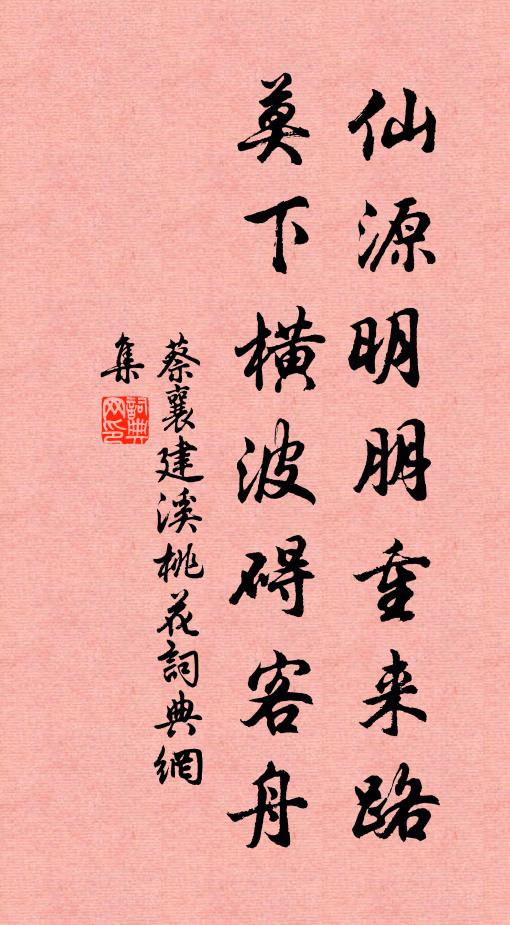 仙源明朋重来路
莫下横波碍客舟
蔡襄建溪桃花詞典網
集
詞典网印